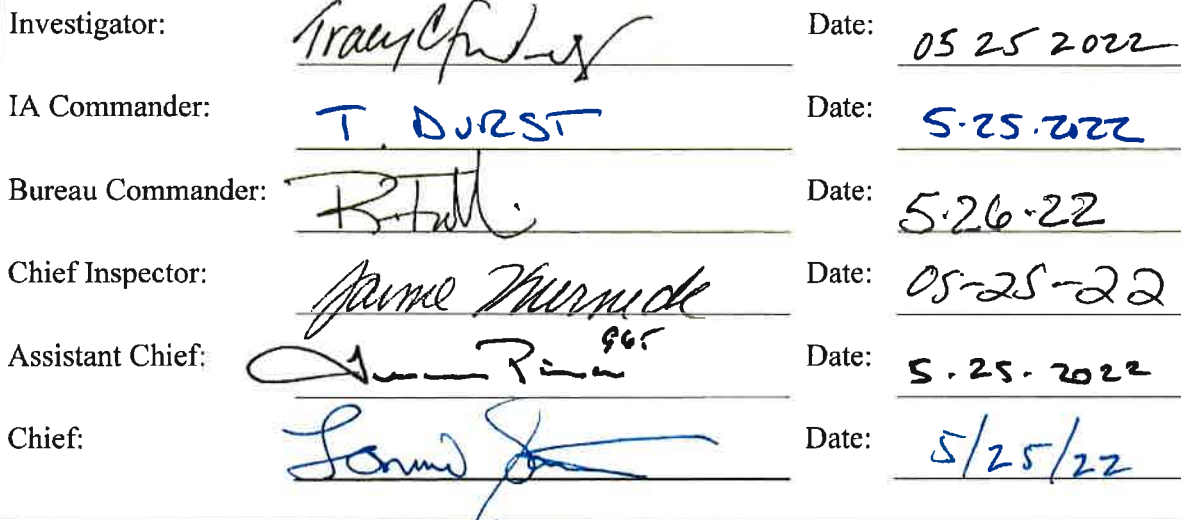 Investigator: Tracy Date: 05 25 2022
IA Commander: T. DURST Date: 5.25.2022
Bureau Commander: Date: 5.26.22
Chief Inspector: Jaime Date: 05-25-22
Assistant Chief: Date: 5.25.2022
Chief: Date: 5/25/22